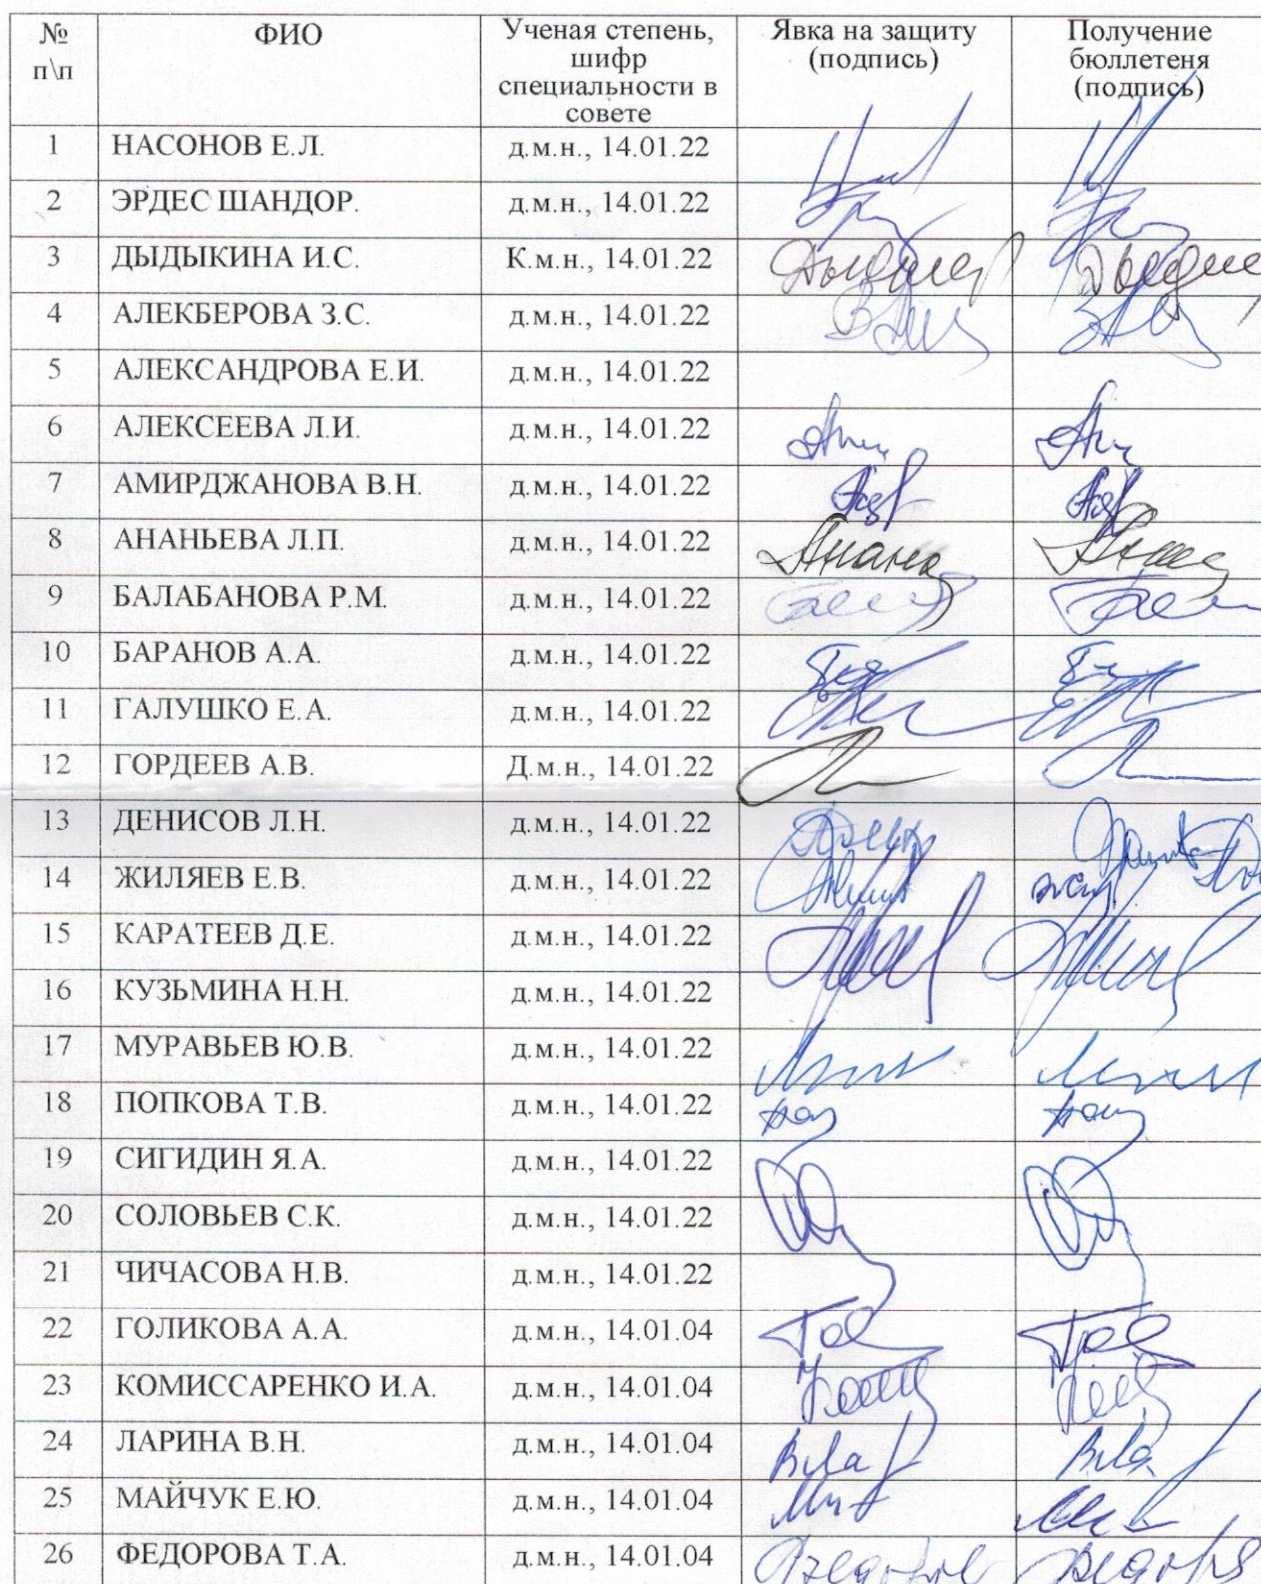 № п\п ФИО Ученая степень, шифр специальности в совете Явка на защиту (подпись) Получение бюллетеня (подпись)
1 НАСОНОВ Е.Л. д.м.н., 14.01.22
2 ЭРДЕС ШАНДОР. д.м.н., 14.01.22
3 ДЫДЫКИНА И.С. К.м.н., 14.01.22
4 АЛЕКБЕРОВА З.С. д.м.н., 14.01.22
5 АЛЕКСАНДРОВА Е.И. д.м.н., 14.01.22
6 АЛЕКСЕЕВА Л.И. д.м.н., 14.01.22
7 АМИРДЖАНОВА В.Н. д.м.н., 14.01.22
8 АНАНЬЕВА Л.П. д.м.н., 14.01.22
9 БАЛАБАНОВА Р.М. д.м.н., 14.01.22
10 БАРАНОВ А.А. д.м.н., 14.01.22
11 ГАЛУШКО Е.А. д.м.н., 14.01.22
12 ГОРДЕЕВ А.В. Д.м.н., 14.01.22
13 ДЕНИСОВ Л.Н. д.м.н., 14.01.22
14 ЖИЛЯЕВ Е.В. д.м.н., 14.01.22
15 КАРАТЕЕВ Д.Е. д.м.н., 14.01.22
16 КУЗЬМИНА Н.Н. д.м.н., 14.01.22
17 МУРАВЬЕВ Ю.В. д.м.н., 14.01.22
18 ПОПКОВА Т.В. д.м.н., 14.01.22
19 СИГИДИН Я.А. д.м.н., 14.01.22
20 СОЛОВЬЕВ С.К. д.м.н., 14.01.22
21 ЧИЧАСОВА Н.В. д.м.н., 14.01.22
22 ГОЛИКОВА А.А. д.м.н., 14.01.04
23 КОМИССАРЕНКО И.А. д.м.н., 14.01.04
24 ЛАРИНА В.Н. д.м.н., 14.01.04
25 МАЙЧУК Е.Ю. д.м.н., 14.01.04
26 ФЕДОРОВА Т.А. д.м.н., 14.01.04